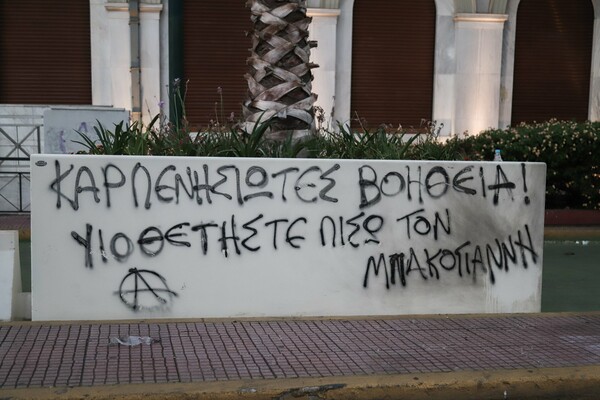 ΚΑΡΠΕΝΗΣΙΩΤΕΣ ΒΟΗΘΕΙΑ!
ΥΙΟΘΕΤΗΣΤΕ ΠΙΣΩ ΤΟΝ
ΜΠΑΚΟΓΙΑΝΝΗ